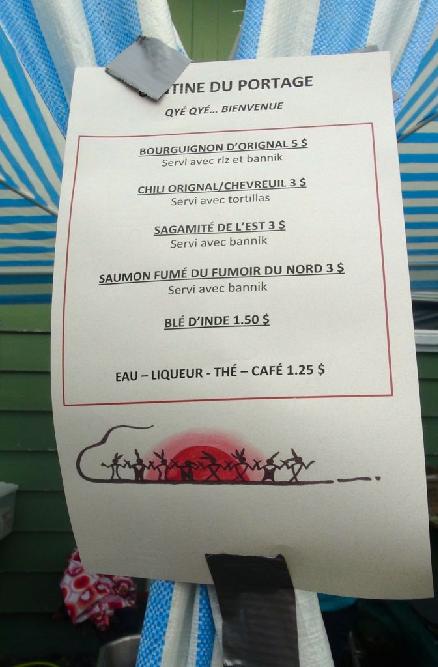 TINE DU PORTAGE
QYÉ QYÉ... BIENVENUE
BOURGUIGNON D'ORIGNAL 5 $
Servi avec riz et bannik
CHILI ORIGNAL/CHEVREUIL 3 $
Servi avec tortillas
SAGAMITÉ DE L'EST 3 $
Servi avec bannik
SAUMON FUMÉ DU FUMOIR DU NORD 3 $
Servi avec bannik
BLÉ D'INDE 1.50 $
EAU – LIQUEUR - THÉ – CAFÉ 1.25 $